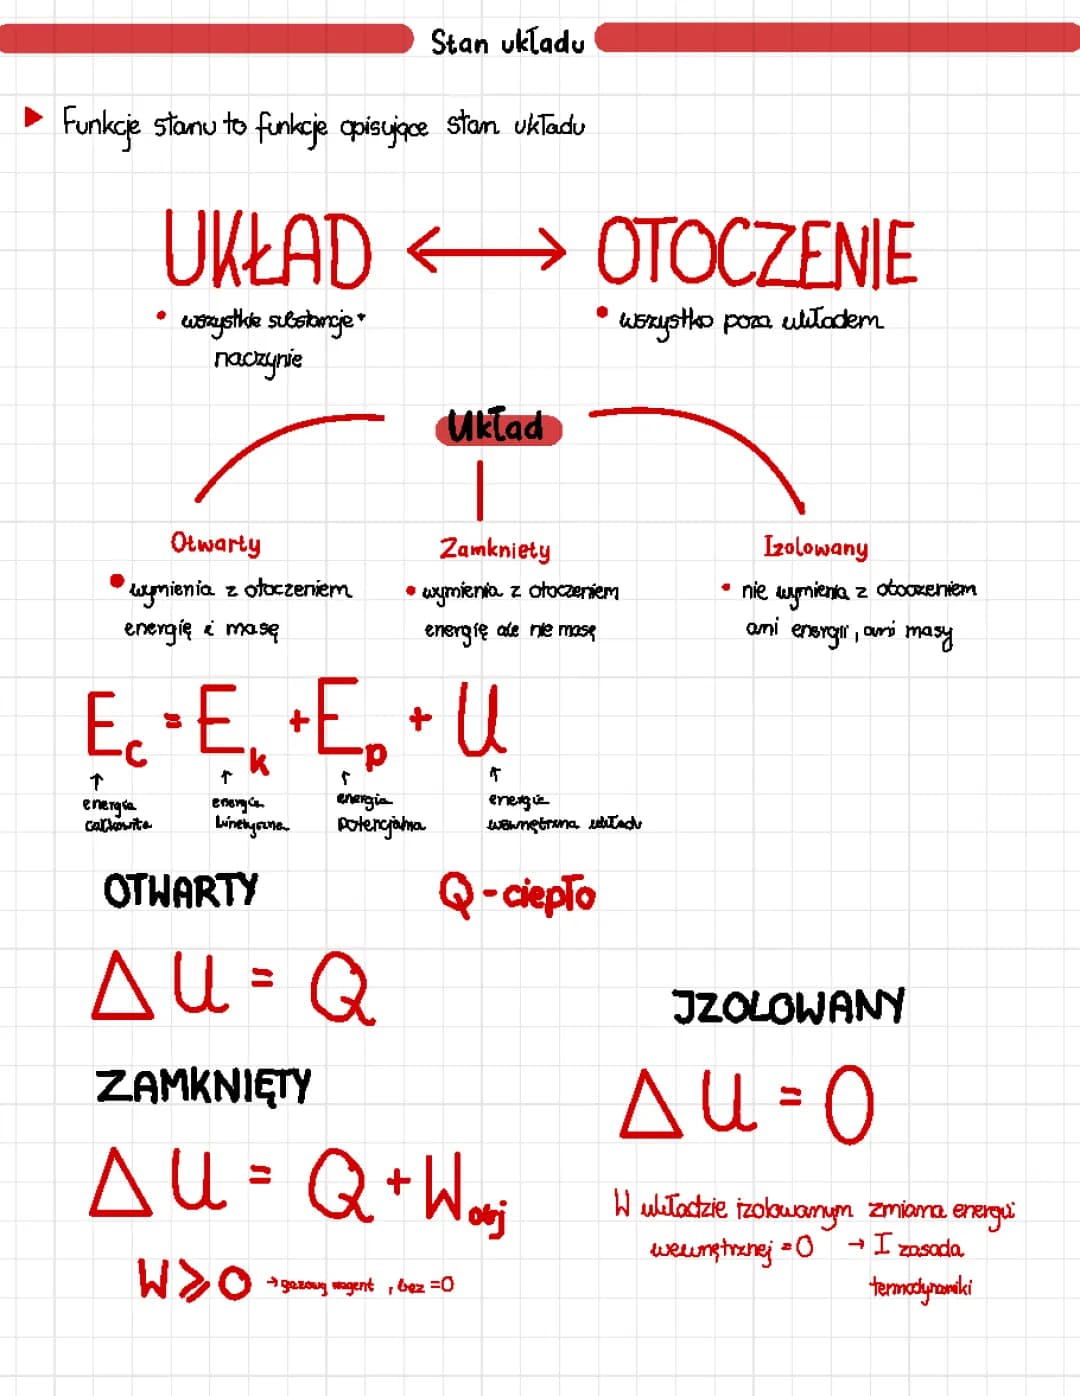 Stan układu
Funkcje stanu to funkcje opisujące stan układu
UKŁAD ↔ OTOCZENIE
• wszystkie substancje +
naczynie
• wszystko poza układem
Układ
Otwarty
• wymienia z otoczeniem
energię i masę
Zamknięty
• wymienia z otoczeniem
energię ale nie masę
Izolowany
• nie wymienia z otoczeniem
ani energii, ani masy
Ec = Ek + Ep + U
↑ energia
całkowita
↑ energia
kinetyczna
↑ energia
potencjalna
↑ energia
wewnętrzna układu
OTWARTY
Q - ciepło
ΔU = Q
ZAMKNIĘTY
ΔU = Q + Wobj
W ⩾ 0 → gazowy reagent, bez = 0
IZOLOWANY
ΔU = 0
W układzie izolowanym zmiana energii
wewnętrznej = 0 → I zasada
termodynamiki